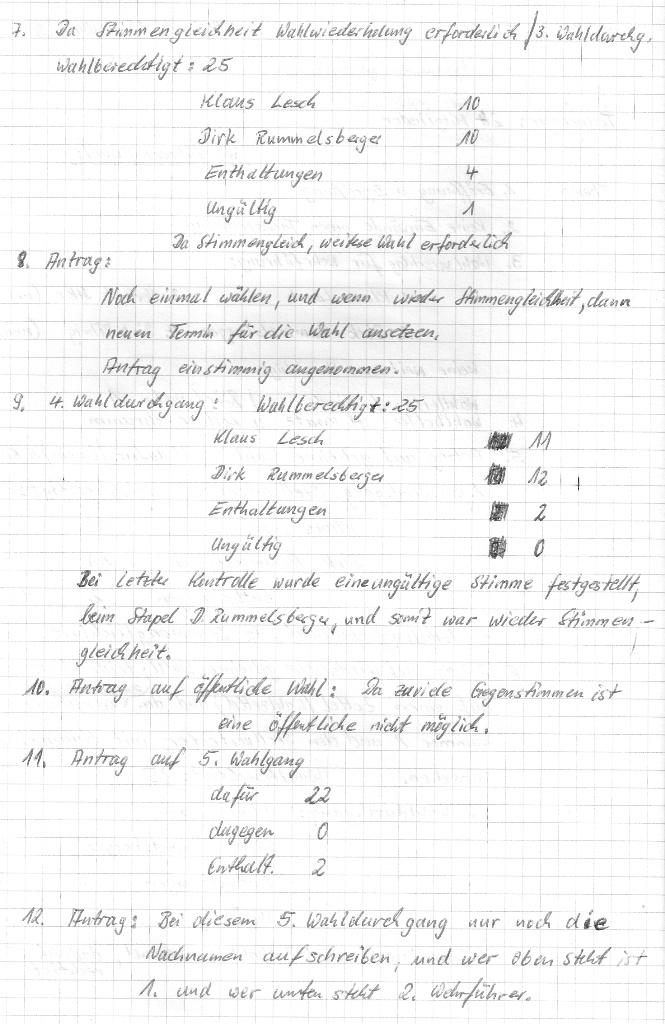 7. Da Stimmengleichheit Wahlwiederholung erforderlich / 3. Wahldurchg.
Wahlberechtigt: 25
Klaus Lesch 10
Dirk Rummelsberger 10
Enthaltungen 4
Ungültig 1
Da Stimmengleich, weitere Wahl erforderlich
8. Antrag:
Noch einmal wählen, und wenn wieder Stimmengleichheit, dann
neuen Termin für die Wahl ansetzen.
Antrag einstimmig angenommen.
9. 4. Wahldurchgang: Wahlberechtigt: 25
Klaus Lesch 11
Dirk Rummelsberger 12
Enthaltungen 2
Ungültig 0
Bei letzter Kontrolle wurde eine ungültige Stimme festgestellt,
beim Stapel D. Rummelsberger, und somit war wieder Stimmen-
gleichheit.
10. Antrag auf öffentliche Wahl: Da zuviele Gegenstimmen ist
eine öffentliche nicht möglich.
11. Antrag auf 5. Wahlgang
dafür 22
dagegen 0
Enthalt. 2
12. Antrag: Bei diesem 5. Wahldurchgang nur noch die
Nachnamen aufschreiben, und wer oben steht ist
1. und wer unten steht 2. Wehrführer.